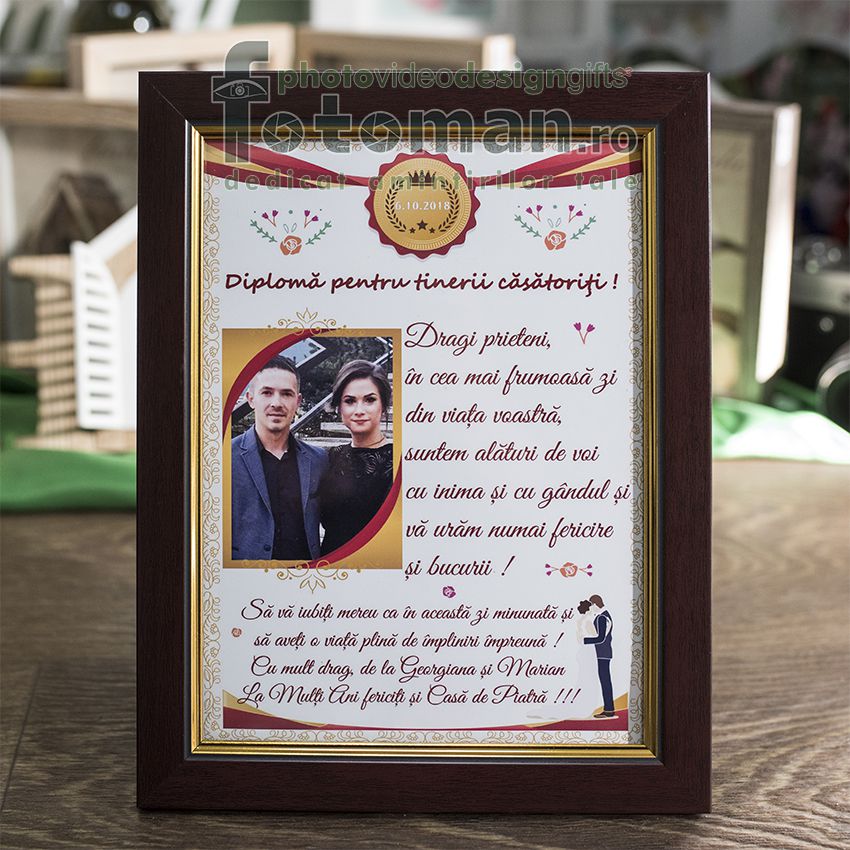 photovideodesigngifts
fotoman.ro
dedicat amintirilor tale
6.10.2018
Diplomă pentru tinerii căsătoriţi !
Dragi prieteni,
în cea mai frumoasă zi
din viața voastră,
suntem alături de voi
cu inima și cu gândul și
vă urăm numai fericire
și bucurii !
Să vă iubiți mereu ca în această zi minunată și
să aveți o viață plină de împliniri împreună !
Cu mult drag, de la Georgiana și Marian
La Mulți Ani fericiți și Casă de Piatră !!!